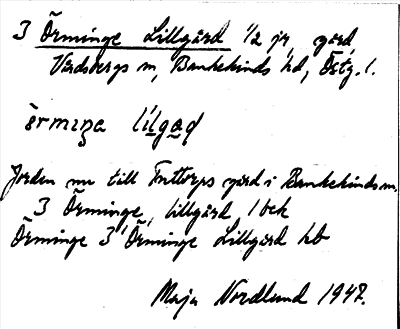 3 Örminge Lillgård 1/2 jr, gård,
Vårdsbergs sn, Bankekinds hd, Östg. l.
ö̀rmiŋa lílgaḍ
Jorden nu till Fruttorps gård i Bankekinds sn.
3 Örminge, lillgård, 1 bek
Örminge 3 Örminge Lillgård kb
Maja Nordlund 1947.